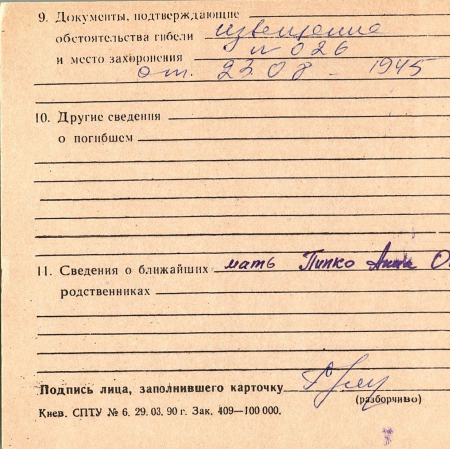 9. Документы, подтверждающие
обстоятельства гибели извещение
и место захоронения № 026
от. 23 08 - 1945
10. Другие сведения
о погибшем
11. Сведения о ближайших мать Пипко Анна О
родственниках
Подпись лица, заполнившего карточку
(разборчиво)
Киев. СПТУ № 6. 29.03. 90 г. Зак. 409—100 000.